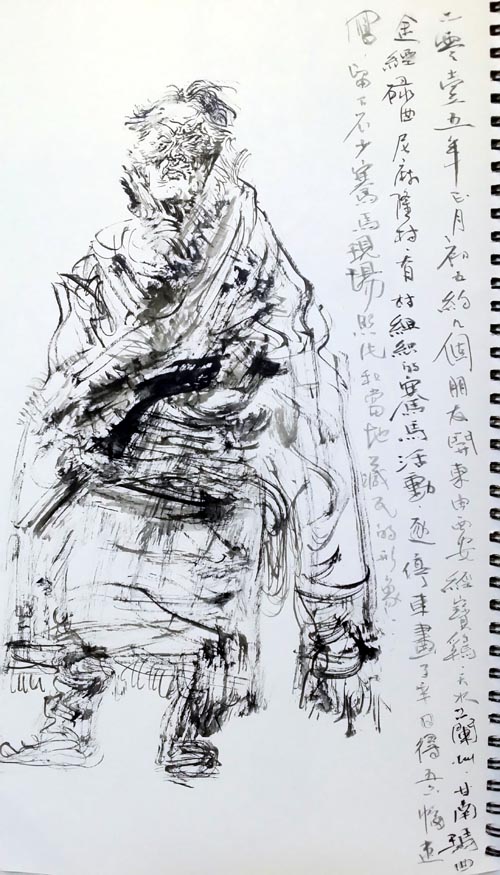 二零壹五年正月初五約几個朋友開車由西安經寶鷄天水蘭州甘南瑪曲
經碌曲尼麻隆村有村組織的賽馬活動遂停車畫了半日得五六幅速
寫留下不少賽馬現場照片和當地藏民的形象